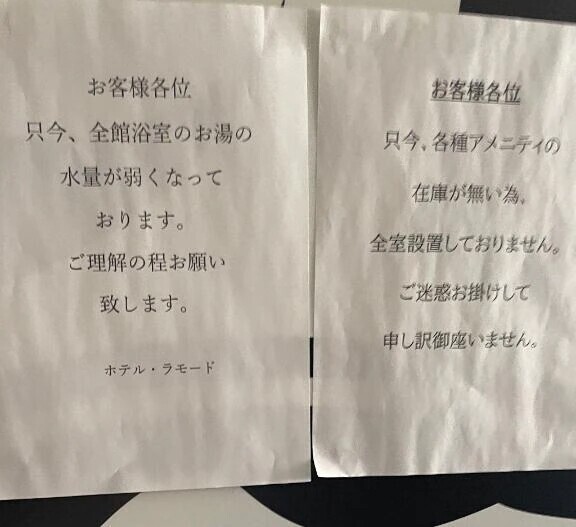 お客様各位
只今、全館浴室のお湯の
水量が弱くなって
おります。
ご理解の程お願い
致します。
ホテル・ラモード
お客様各位
只今、各種アメニティの
在庫が無い為、
全室設置しておりません。
ご迷惑お掛けして
申し訳御座いません。